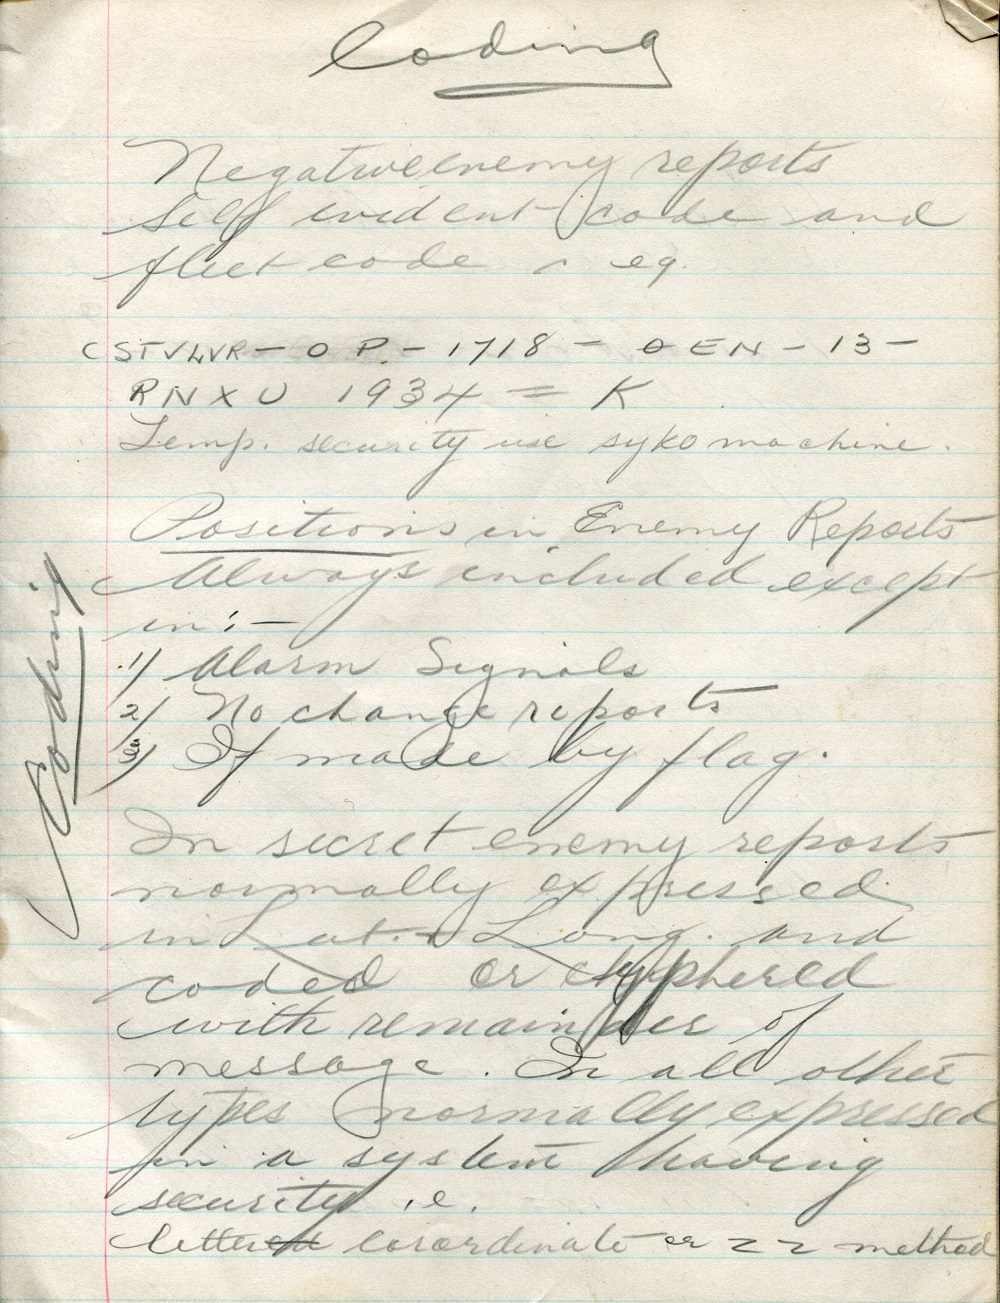 Coding
Negative enemy reports
Self evident code and
fleet code eg.
CSTVLVR - O P. - 1718 - O EN - 13 -
RNXU 1934 = K
Temp. security use syko machine.
Positions in Enemy Reports
Always included except
in :-
1) Alarm Signals
2) No change reports
3) If made by flag.
Coding
In secret enemy reports
normally expressed
in Lat. + Long. and
coded or cyphered
with remainder of
message. In all other
types normally expressed
in a system having
security i.e.
lettered coordinate or ZZ method